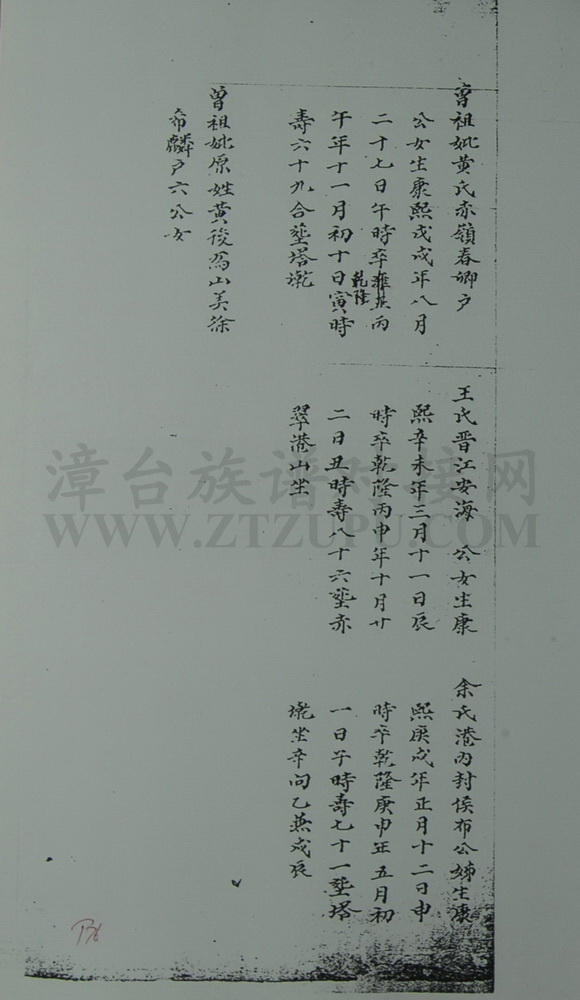 曾祖妣黄氏赤嶺春卿户
公女生康熙戊戌年八月
二十七日午時卒雍正丙
乾隆
午年十一月初十日寅時
壽六十九合塟塔墘
曾祖妣原姓黄後為山美涂
希麟户六公女
王氏晋江安海 公女生康
熙辛未年三月十一日辰
時卒乾隆丙申年十月廿
二日丑時壽八十六塟赤
翠港山坐
余氏港内封侯布公姊生康
熙庚戌年正月十二日申
時卒乾隆庚申年五月初
一日午時壽七十一塟塔
墘坐辛向乙兼戍辰
漳台族谱对接网
WWW.ZTZUPU.COM